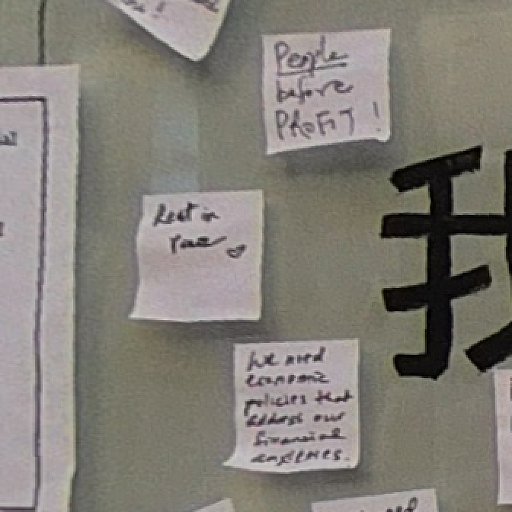 People
before
PROFIT!
Rest in
Peace
我
We need
economic
policies that
address our
financial
anxieties.